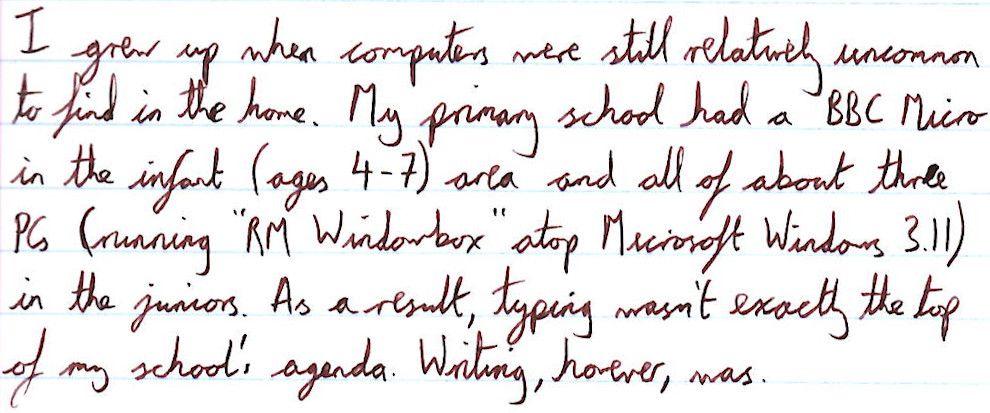 I grew up when computers were still relatively uncommon
to find in the home. My primary school had a BBC Micro
in the infant (ages 4-7) area and all of about three
PCs (running "RM Windowbox" atop Microsoft Windows 3.11)
in the juniors. As a result, typing wasn't exactly the top
of my school's agenda. Writing, however, was.